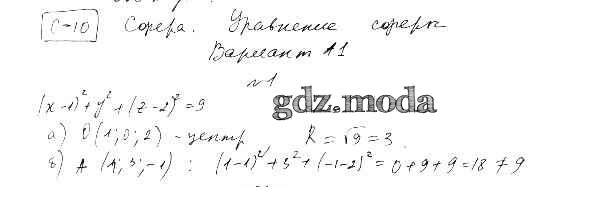 С-10 Сфера. Уравнение сферы
Вариант А1
№1
(x-1)²+y²+(z-2)²=9
gdz.moda
а) O(1;0;2) - центр R=√9=3
б) A (1;3;-1) : (1-1)²+3²+(-1-2)²=0+9+9=18≠9